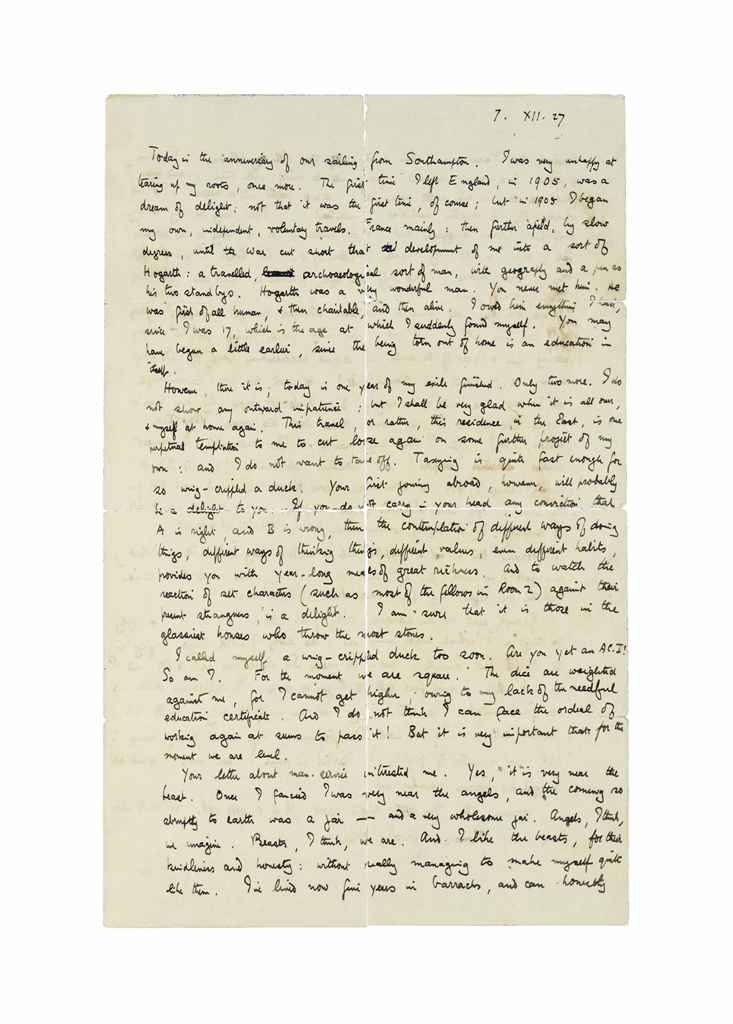 7. XII. 27
Today is the anniversary of our sailing from Southampton. I was very unhappy at
tearing up my roots, once more. The first time I left England, in 1905, was a
dream of delight: not that it was the first time, of course; but in 1905 I began
my own, independent, voluntary travels. France mainly: then further afield, by slow
degrees, until the War cut short that development of me into a sort of
Hogarth: a travelled, archaeological sort of man, with geography and a pen as
his two standbys. Hogarth was a very wonderful man. You never met him. He
was first of all human, & then charitable, and then alive. I owed him everything I have,
since I was 17, which is the age at which I suddenly found myself. You may
have began a little earlier, since the being torn out of home is an education in
itself.
However, there it is; today is one year of my exile finished. Only two more. I do
not show any outward impatience: but I shall be very glad when it is all over,
& myself at home again. This travel, or rather, this residence in the East, is one
perpetual temptation to me to cut loose again on some further project of my
own: and I do not want to take off. Taxying is quite fast enough for
so wing-crippled a duck. Your first joining abroad, however, will probably
be a delight to you. If you do not carry in your head any conviction that
A is right, and B is wrong, then the contemplation of different ways of doing
things, different ways of thinking things, different values, even different habits,
provides you with year-long meals of great richness. And to watch the
reaction of set characters (such as most of the fellows in Room 2) against their
present strangeness, is a delight. I am sure that it is those in the
glassiest houses who throw the most stones.
I called myself a wing-crippled duck too soon. Are you yet an A.C.I?
So am I. For the moment we are square. The dice are weighted
against me, for I cannot get higher, owing to my lack of the needful
education certificate. And I do not think I can face the ordeal of
working again at sums to pass it! But it is very important that for the
moment we are level.
Your letter about man-service interested me. Yes, it is very near the
beast. Once I fancied I was very near the angels, and the coming so
abruptly to earth was a jar — and a very wholesome jar. Angels, I think,
we imagine. Beasts, I think, we are. And I like the beasts, for their
kindliness and honesty: without really managing to make myself quite
like them. I've lived now five years in barracks, and can honestly